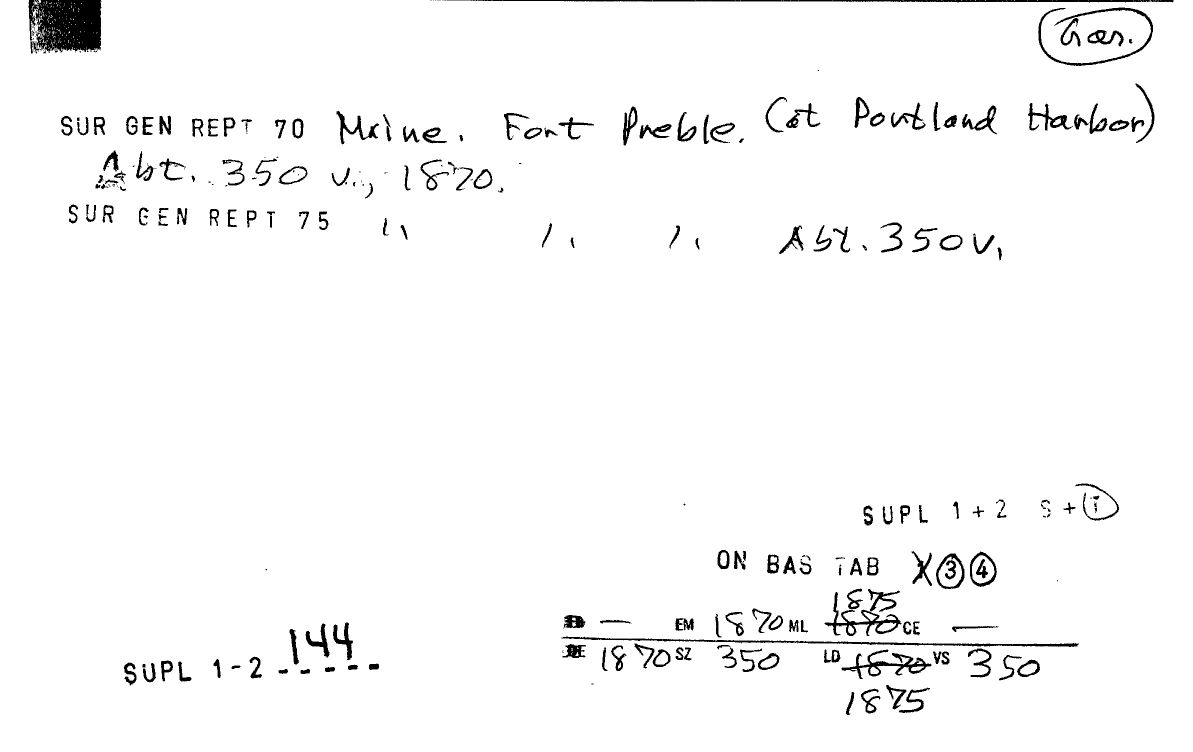 Gar.
SUR GEN REPT 70 Maine. Fort Preble. (at Portland Harbor)
Abt. 350 v., 1870.
SUR GEN REPT 75 " " " Abt. 350 v.
SUPL 1+2 S+i
ON BAS TAB X 3 4
1875
— EM 1870 ML 1870 CE —
DE 1870 SZ 350 LD 1870 VS 350
1875
SUPL 1-2 144